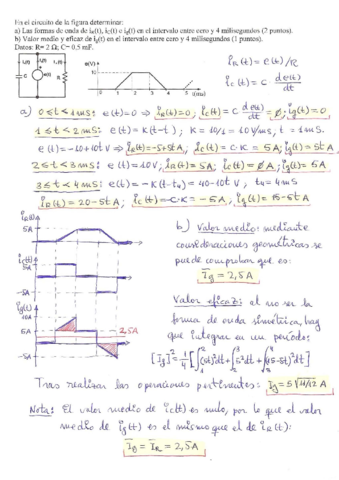 En el circuito de la figura determinar:
a) Las formas de onda de iR(t), iC(t) e ig(t) en el intervalo entre cero y 4 milisegundos (2 puntos).
b) Valor medio y eficaz de ig(t) en el intervalo entre cero y 4 milisegundos (1 puntos).
Datos: R= 2 Ω; C= 0,5 mF.
e(V)
10
t(ms)
iR(t) = e(t)/R
iC(t) = C · de(t)/dt
a) 0≤t<1mS: e(t)=0 ⇒ iR(t)=0; iC(t)= C de(t)/dt = 0; ig(t)=0
1≤t<2mS: e(t)=K(t-t₁); K = 10/1 = 10V/mS, t₁=1mS.
e(t)=-10+10t V ⇒ iR(t)=-5+5t A; iC(t)=C·K = 5A; ig(t)=5t A
2≤t<3mS: e(t)=10V; iR(t)=5A; iC(t)=0A; ig(t)=5A
3≤t<4mS: e(t)=-K(t-t₄)=40-10t V, t₄=4mS
iR(t)=20-5t A; iC(t)=-C·K=-5A; ig(t)=15-5t A
iR(t)
5A
iC(t)
5A
-5A
ig(t)
10A
5A
2,5A
-5A
b) Valor medio: mediante
consideraciones geométricas se
puede comprobar que es:
Ig = 2,5A
Valor eficaz: al no ser la
forma de onda simétrica, hay
que integrar en un período:
[Ig]² = 1/4 [∫₁²(5t)²dt + ∫₂³5²dt + ∫₃⁴(15-5t)²dt]
Tras realizar las operaciones pertinentes: Ig = 5√11/12 A
Nota: El valor medio de iC(t) es nulo, por lo que el valor
medio de ig(t) es el mismo que el de iR(t):
Ig = IR = 2,5A